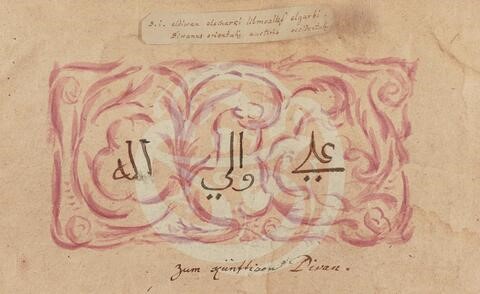 D. i. eldiwan elscharki lilmoallif elgarbi.
Diwanus orientalis auctoris occidentalis
علي والي لله
zum künftigen Divan.